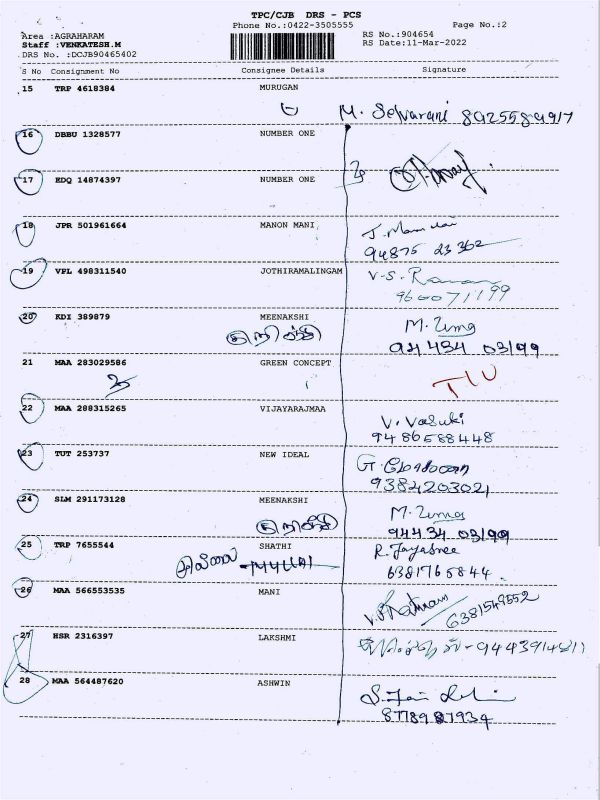 TPC/CJB DRS - PCS
Phone No.:0422-3505555 Page No.:2
Area :AGRAHARAM RS No.:904654
Staff :VENKATESH.M RS Date:11-Mar-2022
DRS No. :DCJB90465402
S No Consignment No Consignee Details Signature
15 TRP 4618384 MURUGAN
M. Selvarani 8925589917
16 DBBU 1328577 NUMBER ONE
17 EDQ 14874397 NUMBER ONE
18 JPR 501961664 MANON MANI
94875 23362
19 VPL 498311540 JOTHIRAMALINGAM V-S. Raman
960071199
20 KDI 389879 MEENAKSHI M. Uma
94434 03199
21 MAA 283029586 GREEN CONCEPT
22 MAA 288315265 VIJAYARAJMAA
V. Vasuki
9486588448
23 TUT 253737 NEW IDEAL
9384203021
24 SLM 291173128 MEENAKSHI
M. Uma
94434 03199
25 TRP 7655544 SHATHI R. Jayasree
6381765844
26 MAA 566553535 MANI
6381549552
27 HSR 2316397 LAKSHMI
28 MAA 564487620 ASHWIN
8778987934